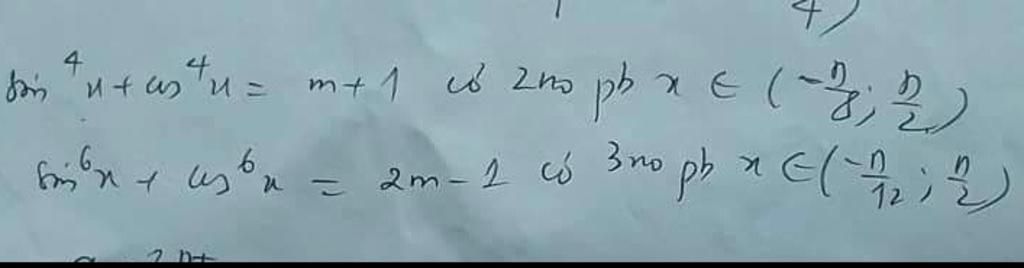 4)
sin⁴x + cos⁴x = m + 1 có 2no pb x ∈ (-π/8; π/2)
sin⁶x + cos⁶x = 2m - 1 có 3no pb x ∈ (-π/12; π/2)